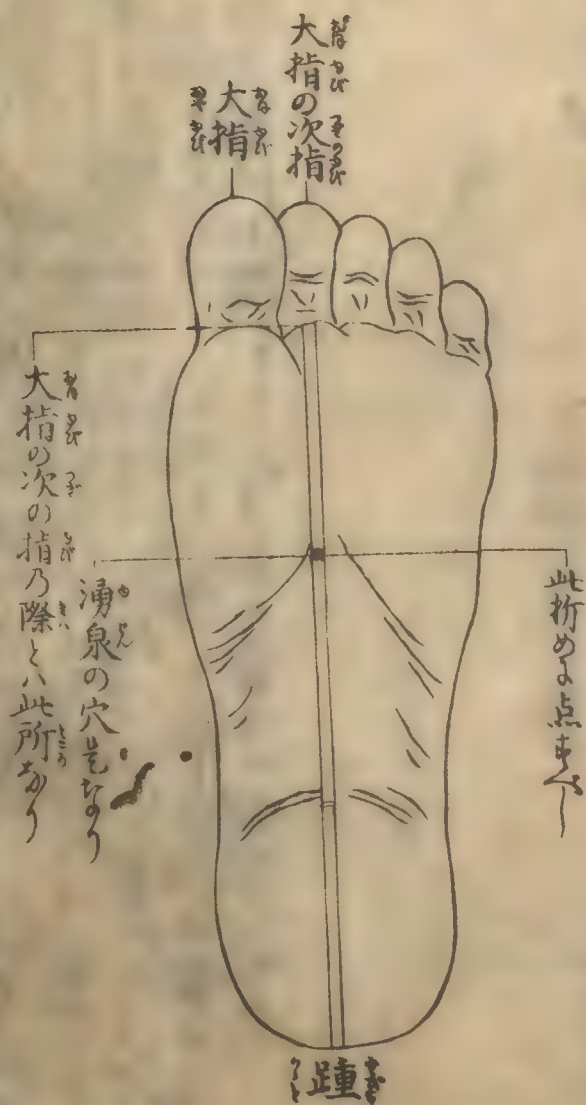 大指の次指
大指
此折めに点すべし
湧泉の穴是なり
大指の次の指乃際とハ此所なり
踵